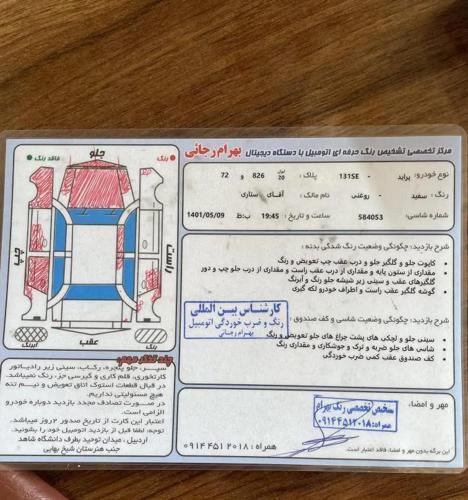 مرکز تخصصی تشخیص رنگ حرفه ای اتومبیل با دستگاه دیجیتال بهرام رجائی
نوع خودرو: پراید - 131SE پلاک: ایران 20 826 و 72
رنگ: سفید - روغنی نام مالک: آقای ستاری
شماره شاسی: 584053 ساعت و تاریخ: 19:45 ب.ظ 1401/05/09
شرح بازدید: چگونگی وضعیت رنگ شدگی بدنه:
کاپوت جلو و گلگیر جلو و درب عقب چپ تعویض و رنگ
مقداری از ستون پایه و مقداری از درب عقب راست و مقداری از درب جلو چپ و دور
گلگیرهای عقب و سینی زیر شیشه جلو رنگ و آبرنگ
گوشه گلگیر عقب راست و اطراف خودرو لکه گیری
شرح بازدید: چگونگی وضعیت شاسی و کف صندوق:
سینی جلو و لچکی های پشت چراغ های جلو تعویض و رنگ
شاسی های جلو ضربه و ترک و جوشکاری و مقداری رنگ
کف صندوق عقب کمی ضرب خوردگی
کارشناس بین المللی
رنگ و ضرب خوردگی اتومبیل
بهرام رجائی
مهر و امضاء:
شخص تخصصی رنگ بهرام
همراه: ۰۹۱۴۴۵۱۲۰۱۸
همراه: ۰۹۱۴۴۵۱۲۰۱۸
این برگه بدون مهر و امضاء، فاقد اعتبار است.
فاقد رنگ
جلو
رنگ
چپ
راست
آبرنگ
عقب
رنگ
چند تذکر مهم:
سپر، جلو پنجره، رکاب، سینی زیر رادیاتور
کارتخوری، قلم کاری و گیرسی جزء رنگ نمیباشد.
در قبال قطعات استوک اتاق تعویض و نیم تنه
هیچ مسئولیتی نداریم.
در صورت تصادف مجدد بازدید دوباره خودرو
الزامی است.
اعتبار این کارت از تاریخ صدور ۲ روز میباشد.
توجه: لطفا قبل از بازدید اتومبیل خود را بشوئید.
اردبیل، میدان توحید بطرف دانشگاه شاهد
جنب هنرستان شیخ بهایی